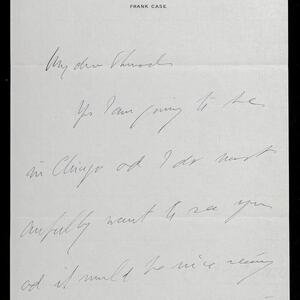 FRANK CASE
My dear
Yes I am going to be
in Chicago and I do most
awfully want to see you
and it would be nice seeing